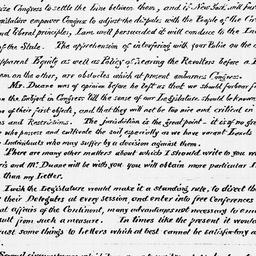 ize Congress to settle the Line between them, and if New York, and
gislature empower Congress to adjust the dispute with the People of the
nd liberal principles, I am well persuaded it will conduce to the
of the State. The apprehension of interfering with your Police on the
apparent Equity as well as Policy of hearing the Revolters before a
em on the other, are obstacles which at present embarrass Congress.
Mr. Duane was of opinion before he left us that we should forbear
on the Subject in Congress till the sense of our Legislature should be known
on of their first object, and that they will not be too nice and critical in
s and Restrictions. The jurisdiction is the grand point - it is of no
who possess and cultivate the soil especially as we have vacant Lands
Individuals who may suffer by a decision against them.
There are many other matters about which I should write to you
ris and Mr. Duane will be with you you will obtain more particular
than my Letter.
I wish the Legislature would make it a standing rule, to direct
their Delegates at every session, and enter into free Conferences
al affairs of the Continent, many advantages would necessarily to
sult from such a measure. In times like the present it would
ust some things to Letters which at best cannot be satisfactory